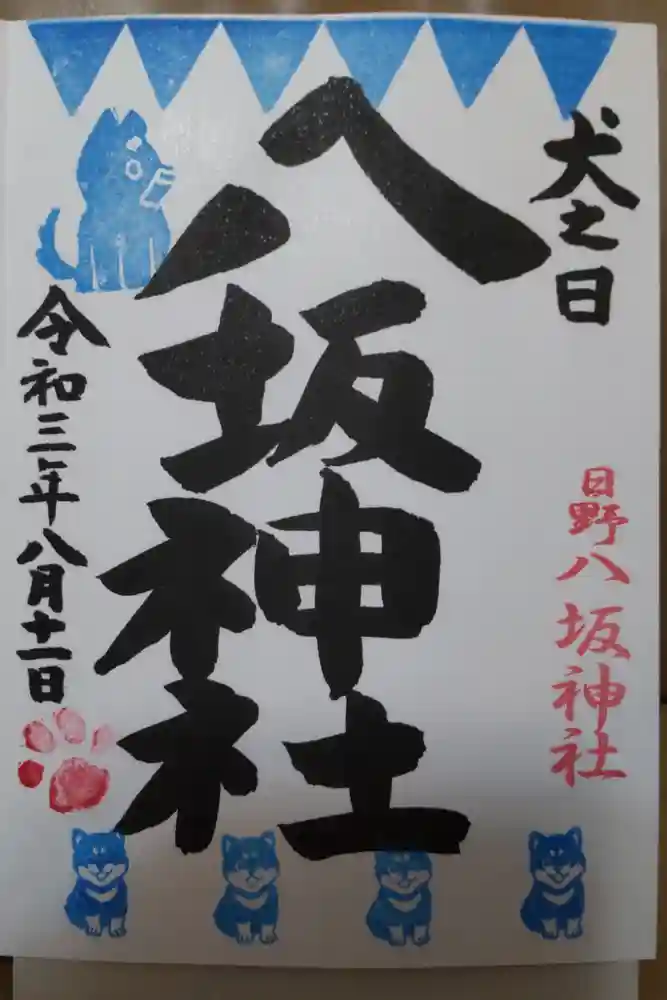 犬之日
日野八坂神社
八坂神社
令和三年八月十一日